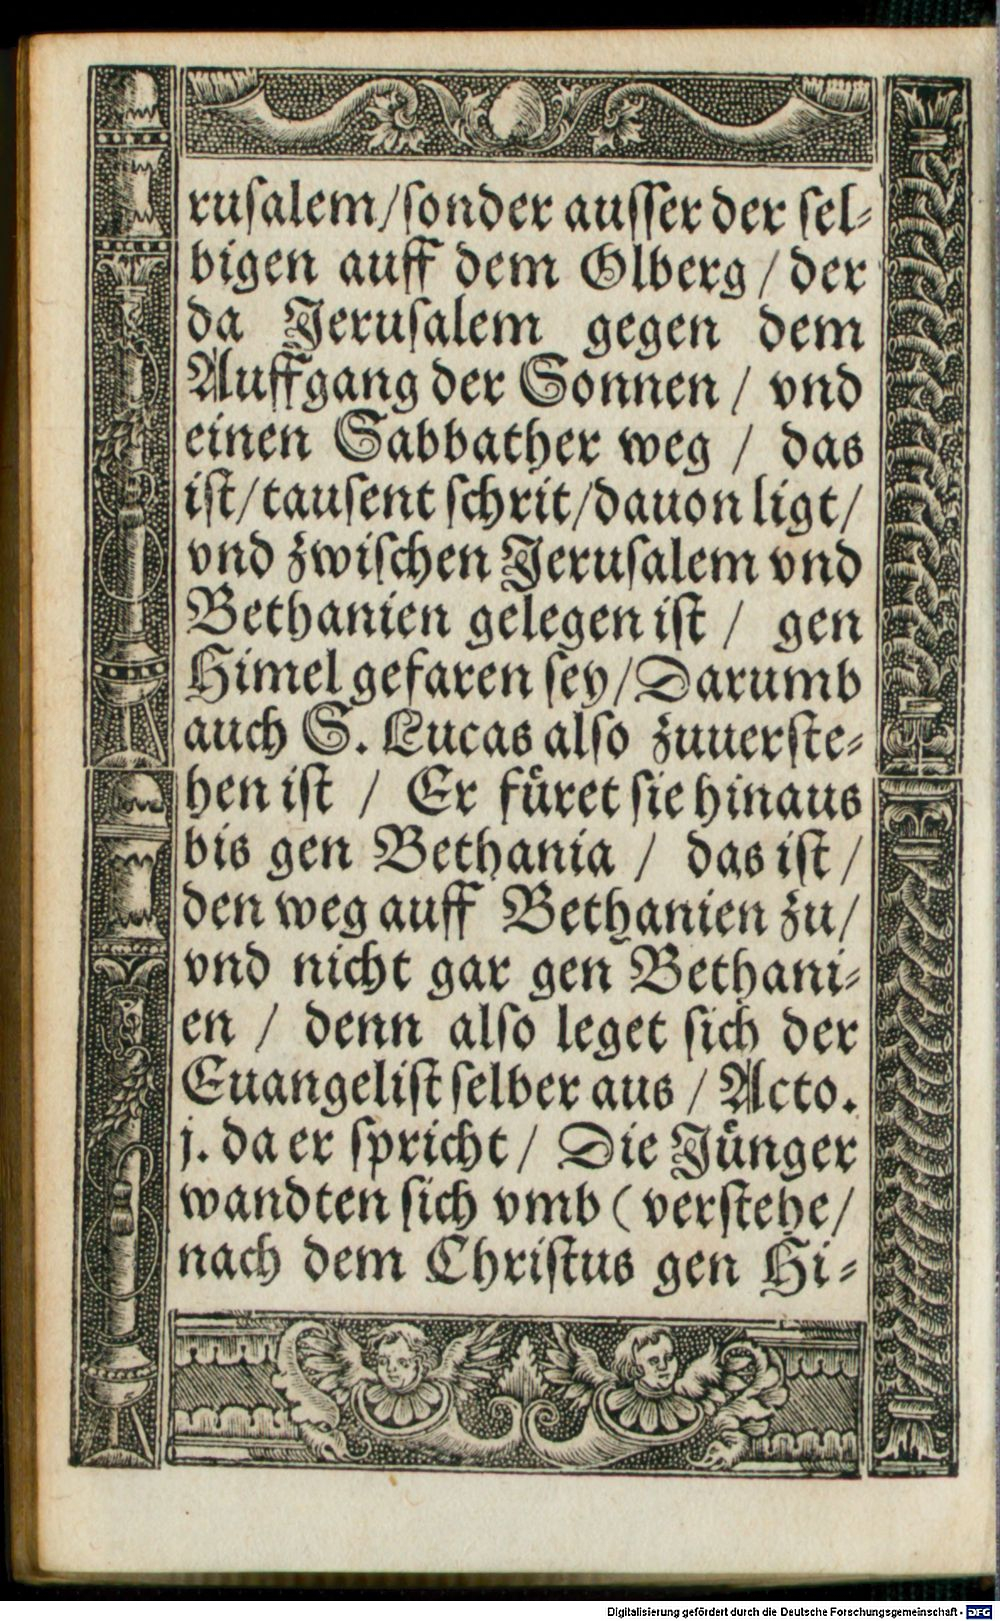 ruſalem/ſonder auſſer der ſel⸗
bigen auff dem Olberg / der
da Jeruſalem gegen dem
Auffgang der Sonnen / vnd
einen Sabbather weg / das
iſt/tauſent ſchrit/dauon ligt/
vnd zwiſchen Jeruſalem vnd
Bethanien gelegen iſt / gen
Himel gefaren ſey/Darumb
auch S. Lucas alſo zuuerſte⸗
hen iſt / Er fuͤret ſie hinaus
bis gen Bethania / das iſt /
den weg auff Bethanien zu/
vnd nicht gar gen Bethani⸗
en / denn alſo leget ſich der
Euangeliſt ſelber aus / Acto.
j. da er ſpricht / Die Juͤnger
wandten ſich vmb ( verſtehe/
nach dem Chriſtus gen Hi⸗
Digitalisierung gefördert durch die Deutsche Forschungsgemeinschaft - DFG